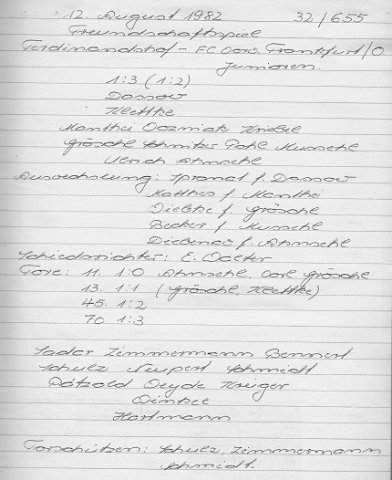 12. August 1982 32/655
Freundschaftsspiel
Ferdinandshof - FC Vorw. Frankfurt/O.
Junioren
1:3 (1:2)
Dassow
Klettke
Manthei Wozniak Kriebel
Gröschl Schmitz Pohl Muschl
Ulrich
Auswechslung: Spranat f. Dassow
Matthes f. Manthei
f. Gröschl
Becker f. Muschl
f.
Schiedsrichter: E. Walter
Tore: 11. 1:0 Vorl. Gröschl
13. 1:1 (Gröschl, Klettke)
45. 1:2
70 1:3
Sadar Zimmermann Bennert
Schulz Neupert Schmidt
Pätzold Deyda Krüger
Winkel
Hartmann
Torschützen: Schulz, Zimmermann
Schmidt.